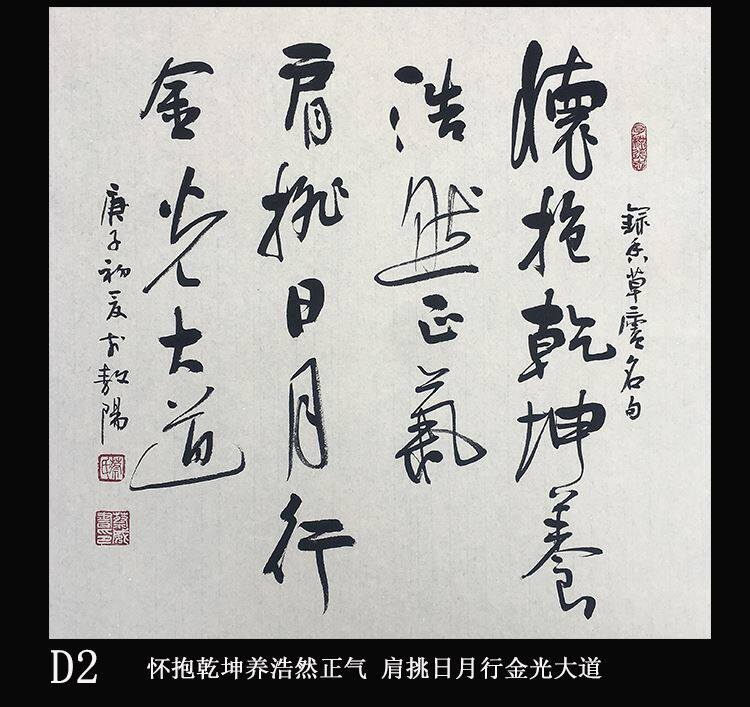 錄香草廬名句
懷抱乾坤養
浩然正氣
肩挑日月行
金光大道
庚子初夏於敖陽
D2 怀抱乾坤养浩然正气 肩挑日月行金光大道